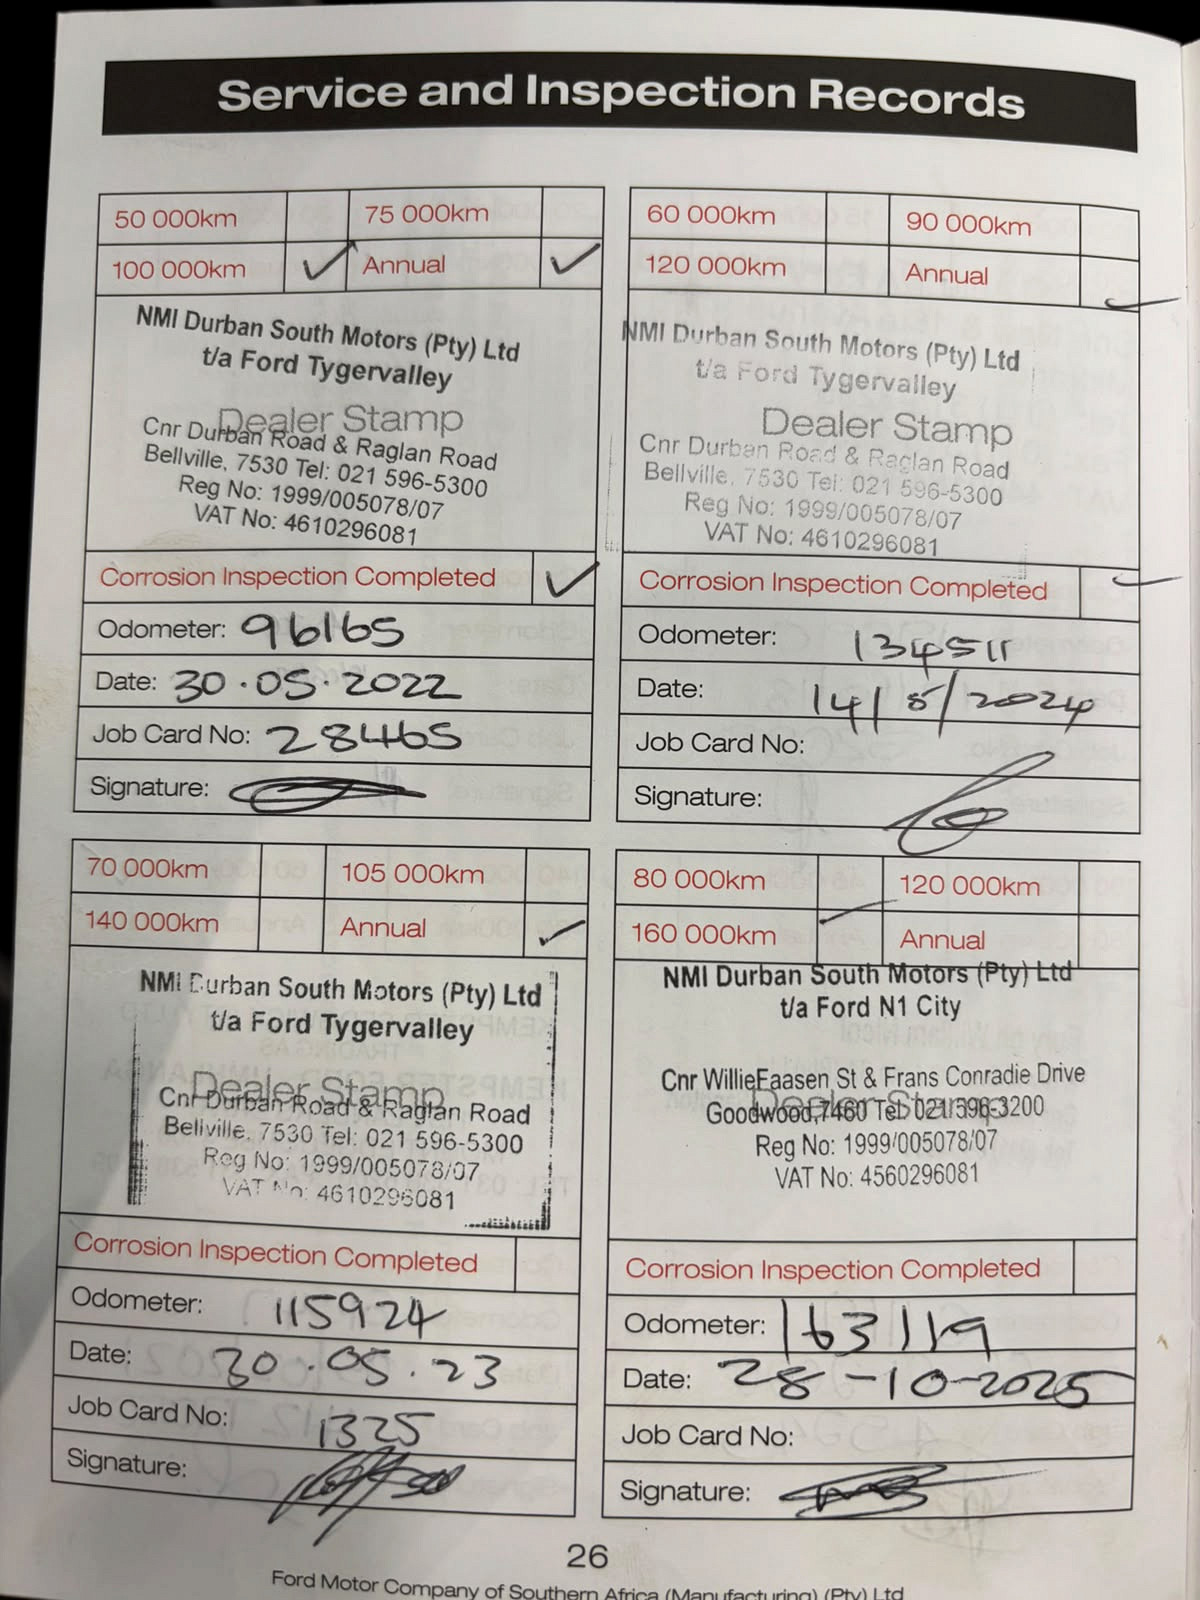 Service and Inspection Records
50 000km 75 000km
100 000km ✓ Annual ✓
NMI Durban South Motors (Pty) Ltd
t/a Ford Tygervalley
Dealer Stamp
Cnr Durban Road & Raglan Road
Bellville, 7530 Tel: 021 596-5300
Reg No: 1999/005078/07
VAT No: 4610296081
Corrosion Inspection Completed ✓
Odometer: 96165
Date: 30.05.2022
Job Card No: 28465
Signature:
60 000km 90 000km
120 000km Annual ✓
NMI Durban South Motors (Pty) Ltd
t/a Ford Tygervalley
Dealer Stamp
Cnr Durban Road & Raglan Road
Bellville, 7530 Tel: 021 596-5300
Reg No: 1999/005078/07
VAT No: 4610296081
Corrosion Inspection Completed ✓
Odometer: 134511
Date: 14/5/2024
Job Card No:
Signature:
70 000km 105 000km
140 000km Annual ✓
NMI Durban South Motors (Pty) Ltd
t/a Ford Tygervalley
Dealer Stamp
Cnr Durban Road & Raglan Road
Bellville, 7530 Tel: 021 596-5300
Reg No: 1999/005078/07
VAT No: 4610296081
Corrosion Inspection Completed
Odometer: 115924
Date: 30.05.23
Job Card No: 1325
Signature:
80 000km 120 000km
160 000km ✓ Annual
NMI Durban South Motors (Pty) Ltd
t/a Ford N1 City
Cnr WillieFaasen St & Frans Conradie Drive
Dealer Stamp
Goodwood,7460 Tel: 021 596-3200
Reg No: 1999/005078/07
VAT No: 4560296081
Corrosion Inspection Completed
Odometer: 163119
Date: 28-10-2025
Job Card No:
Signature:
26
Ford Motor Company of Southern Africa (Manufacturing) (Pty) Ltd